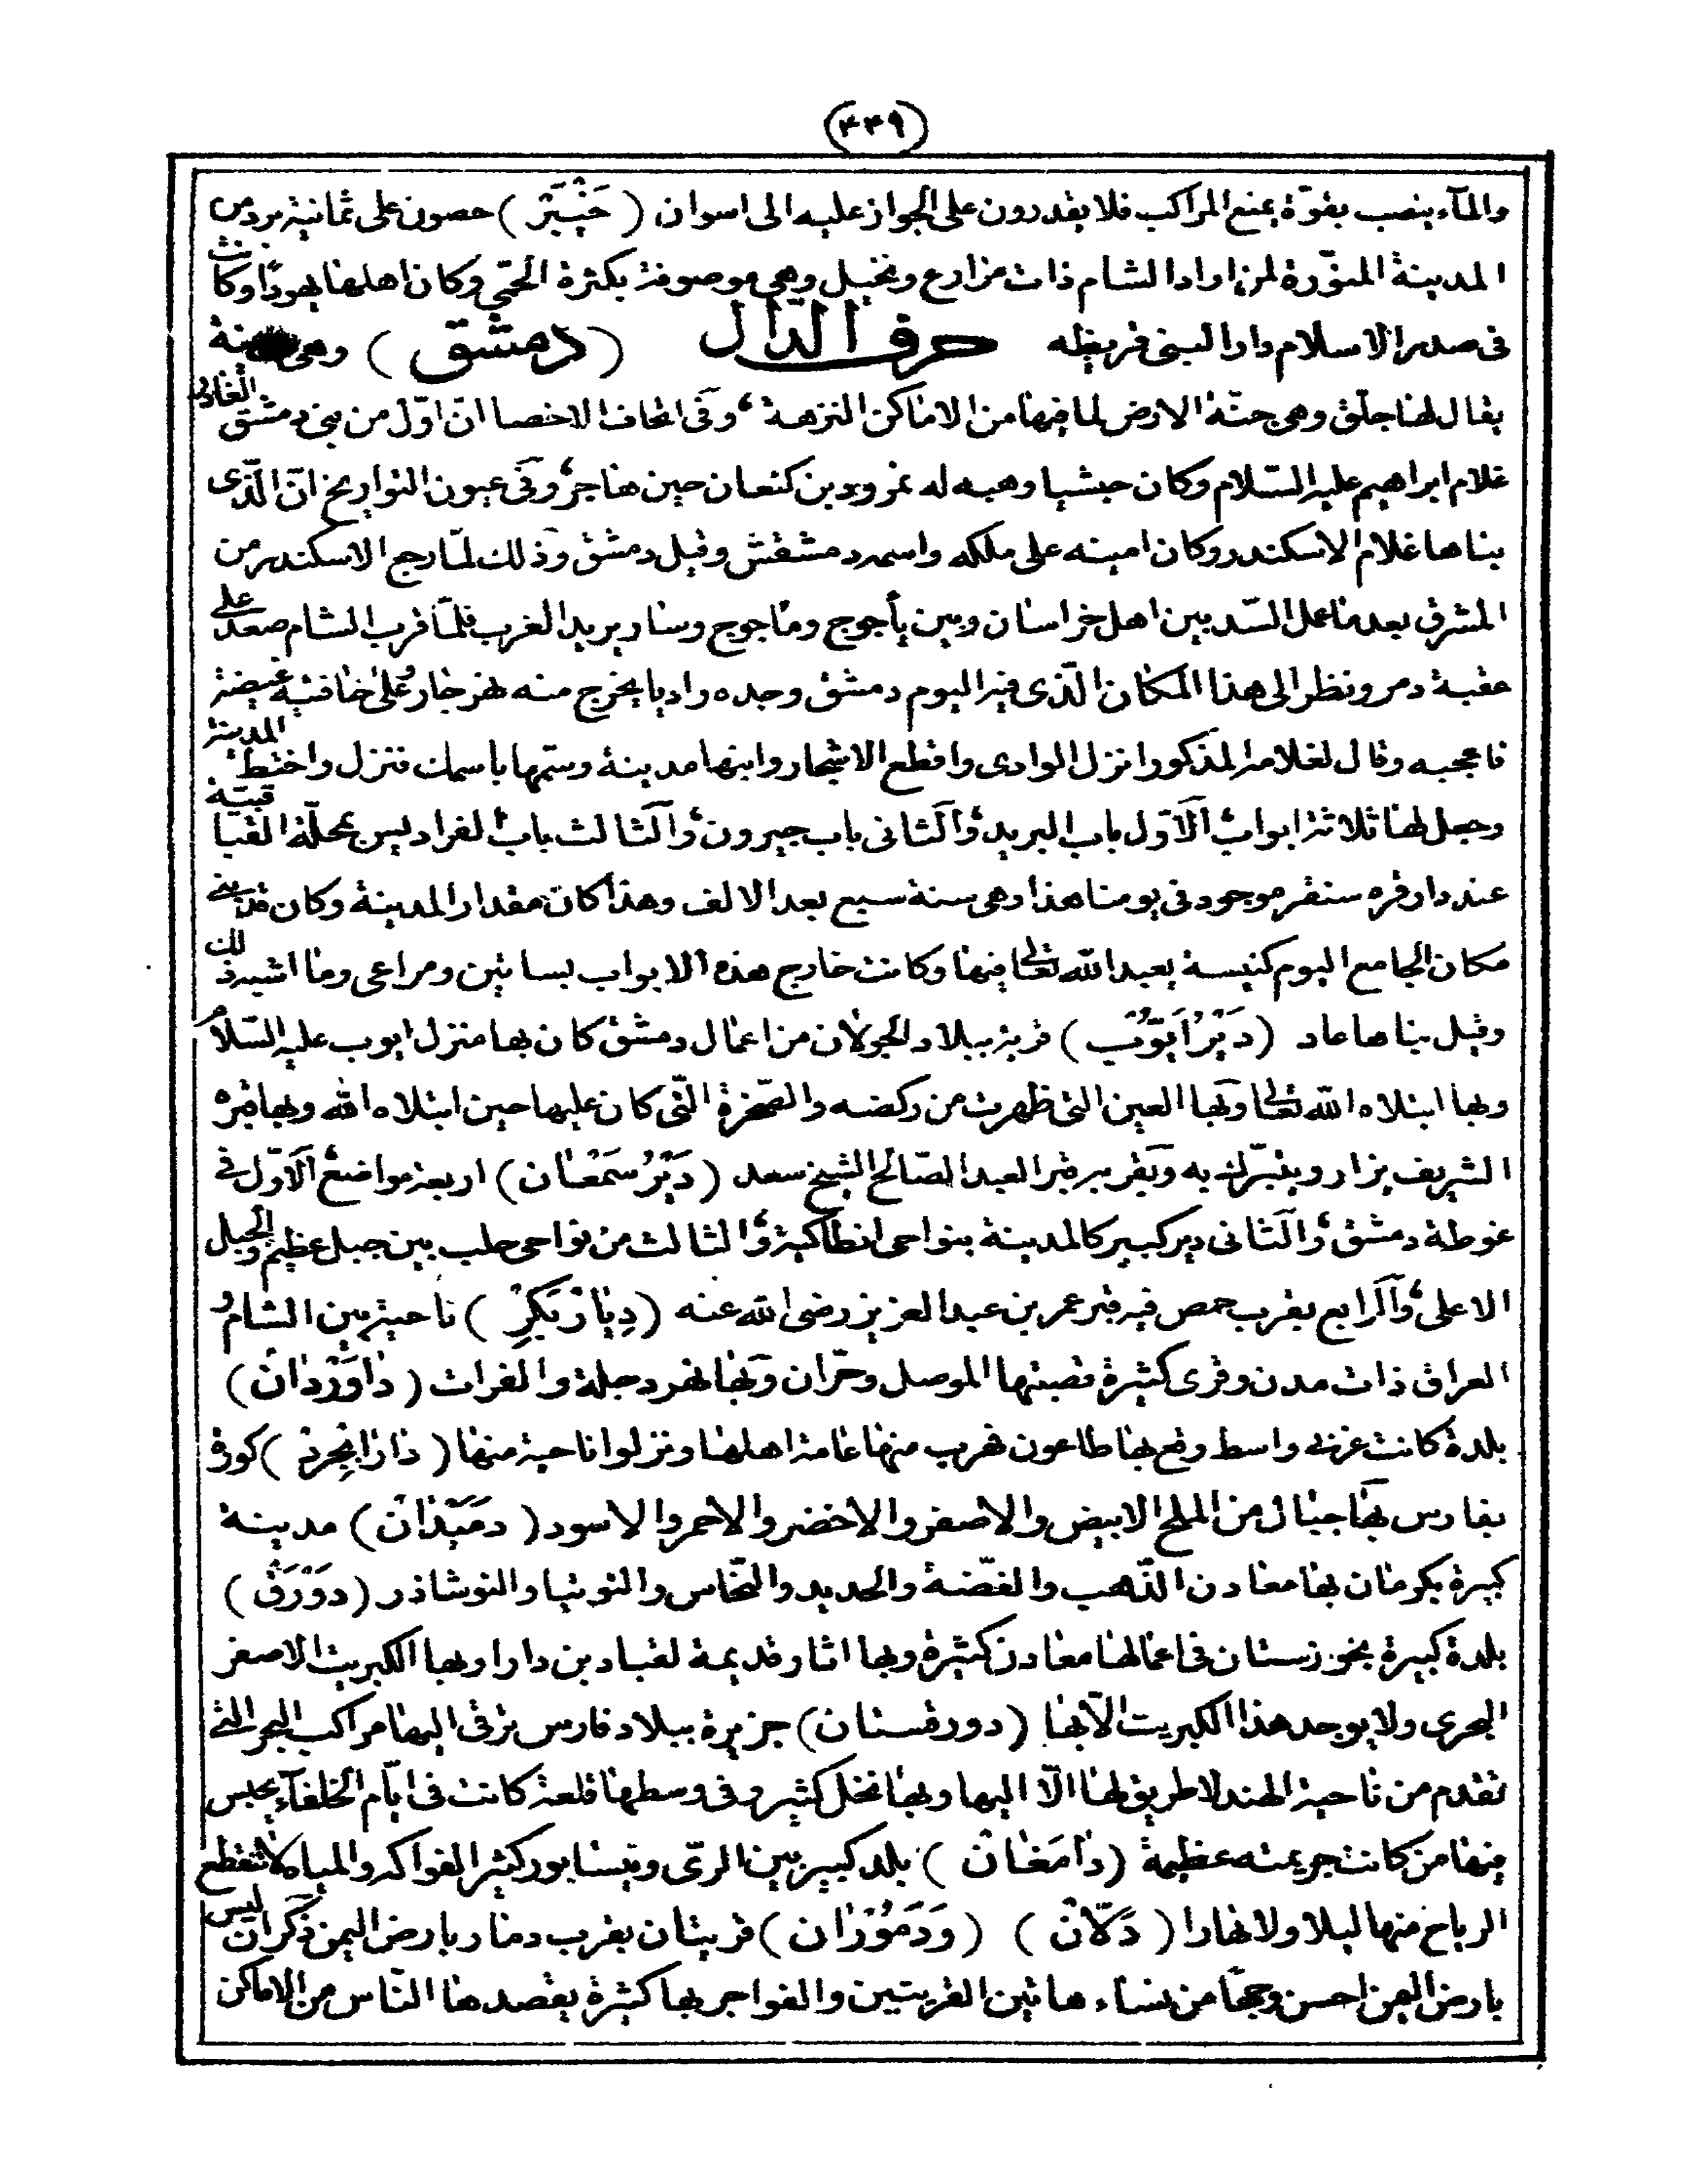 (٤٤٩)
والمآء ينصب بقوّة يمنع المراكب فلا يقدرون على الجواز عليه الى اسوان (خَيْبَر) حصون على ثمانية برد من
المدينة المنوّرة لمن اراد الشام ذات مزارع ونخيل وهي موصوفة بكثرة الحمّى وكان اهلها يهودًا وكانت
في صدر الاسلام دارا لبنى قريظه حرف الدّال (دمشق) وهى مدينة
يقال لها جلّق وهى جنّة الارض لما فيها من الاماكن النزهة، وفى اتحاف الاخصا انّ اوّل من بنى دمشق العازر
غلام ابراهيم عليه السّلام وكان حبشيا وهبه له نمرود بن كنعان حين هاجر، وفى عيون التواريخ انّ الّذى
بناها غلام الاسكندر وكان امينه على ملكه واسمه دمشقش وقيل دمشق وذلك لمّا رجع الاسكندر من
المشرق بعد ما عمل السّد بين اهل خراسان وبين يأجوج وماجوج وسار يريد الغرب فلمّا قرب الشام صعد على
عقبة دمر ونظر الى هذا المكان الّذى فيه اليوم دمشق وجده واديا يخرج منه نهر جار وعلى حافتيه غيضة
فاعجبه وقال لغلامه المذكور انزل الوادى واقطع الاشجار وابنها مدينة وسمّها باسمك فنزل واختط المدينة
وجعل لها ثلاثة ابواب، الاوّل باب البريد، والثانى باب جيرون، والثالث باب الفراديس بمحلّة القباقبيّة
عند دار قره سنقر موجود فى يومنا هذا وهى سنة سبع بعد الالف وهذا كان مقدار المدينة وكان قد بنى
مكان الجامع اليوم كنيسة يعبد الله تعالى فيها وكانت خارج هذه الابواب بساتين ومراعى وما اشبه ذلك
وقيل بناها عاد (دَيْرُ اَيّوُب) قرية ببلاد الجولان من اعمال دمشق كان بها منزل ايوب عليه السّلام
وبها ابتلاه الله تعالى وبها العين التى ظهرت من ركضه والصّخرة الّتى كان عليها حين ابتلاه الله وبها قبره
الشريف يزار ويتبرّك به وبقربه قبر العبد الصّالح الشيخ سعد (دَيْرُ سَمْعان) اربعة مواضع، الاوّل فى
غوطة دمشق، والثانى دير كبير كالمدينة بنواحى انطاكية، والثالث من نواحى حلب بين جبل عظيم والجبل
الاعلى، والرابع بقرب حمص فيه قبر عمر بن عبد العزيز رضى الله عنه (دِيارْ بَكِرْ) ناحية بين الشام و
العراق ذات مدن وقرى كثيرة قصبتها الموصل وحرّان وبها نهر دجلة والفرات (داوَرْدانْ)
بلدة كانت غربى واسط وقع بها طاعون فهرب منها عامة اهلها ونزلوا ناحية منها (دارابْجِرد) كورة
بفارس بها جبال من الملح الابيض والاصفر والاخضر والاحمر والاسود (دَمَيْدانْ) مدينة
كبيرة بكرمان بها معادن الذّهب والفضّة والحديد والنّحاس والتوتيا والنوشاذر (دَوْرَقْ)
بلدة كبيرة بخوزستان فى اعمالها معادن كثيرة وبها اثار قديمة لقباد بن دارا وبها الكبريت الاصفر
البحرى ولا يوجد هذا الكبريت الّا بها (دورقستان) جزيرة ببلاد فارس ترقى اليها مراكب البحر التى
تقدم من ناحية الهند لا طريق لها الّا اليها وبها نخل كثير وفى وسطها قلعة كانت فى ايّام الخلفآء يحبس
فيها من كانت جريمته عظيمة (دامَغان) بلد كبير بين الرىّ ونيسابور كثير الفواكه والمياه لا تنقطع
الرياح منها ليلا ولا نهارا (دَلّانْ) (وَدَمُوْرانْ) قريتان بقرب دمار بارض اليمن ذكر ان ليس
بارض اليمن احسن وجها من نساء هاتين القريتين والفواجر بها كثيرة يقصدها النّاس من الاماكن